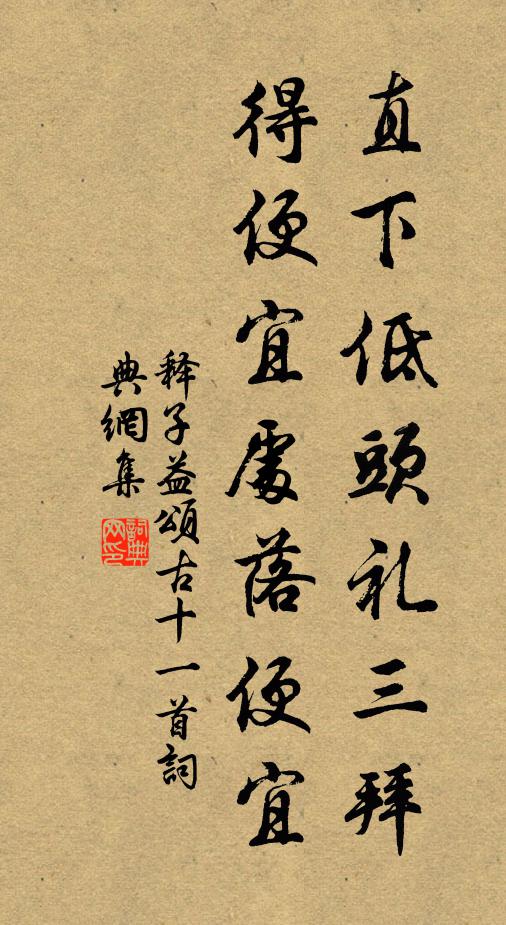 直下低頭礼三拜
得便宜處落便宜
释子益頌古十一首詞
典網集
詞典網印